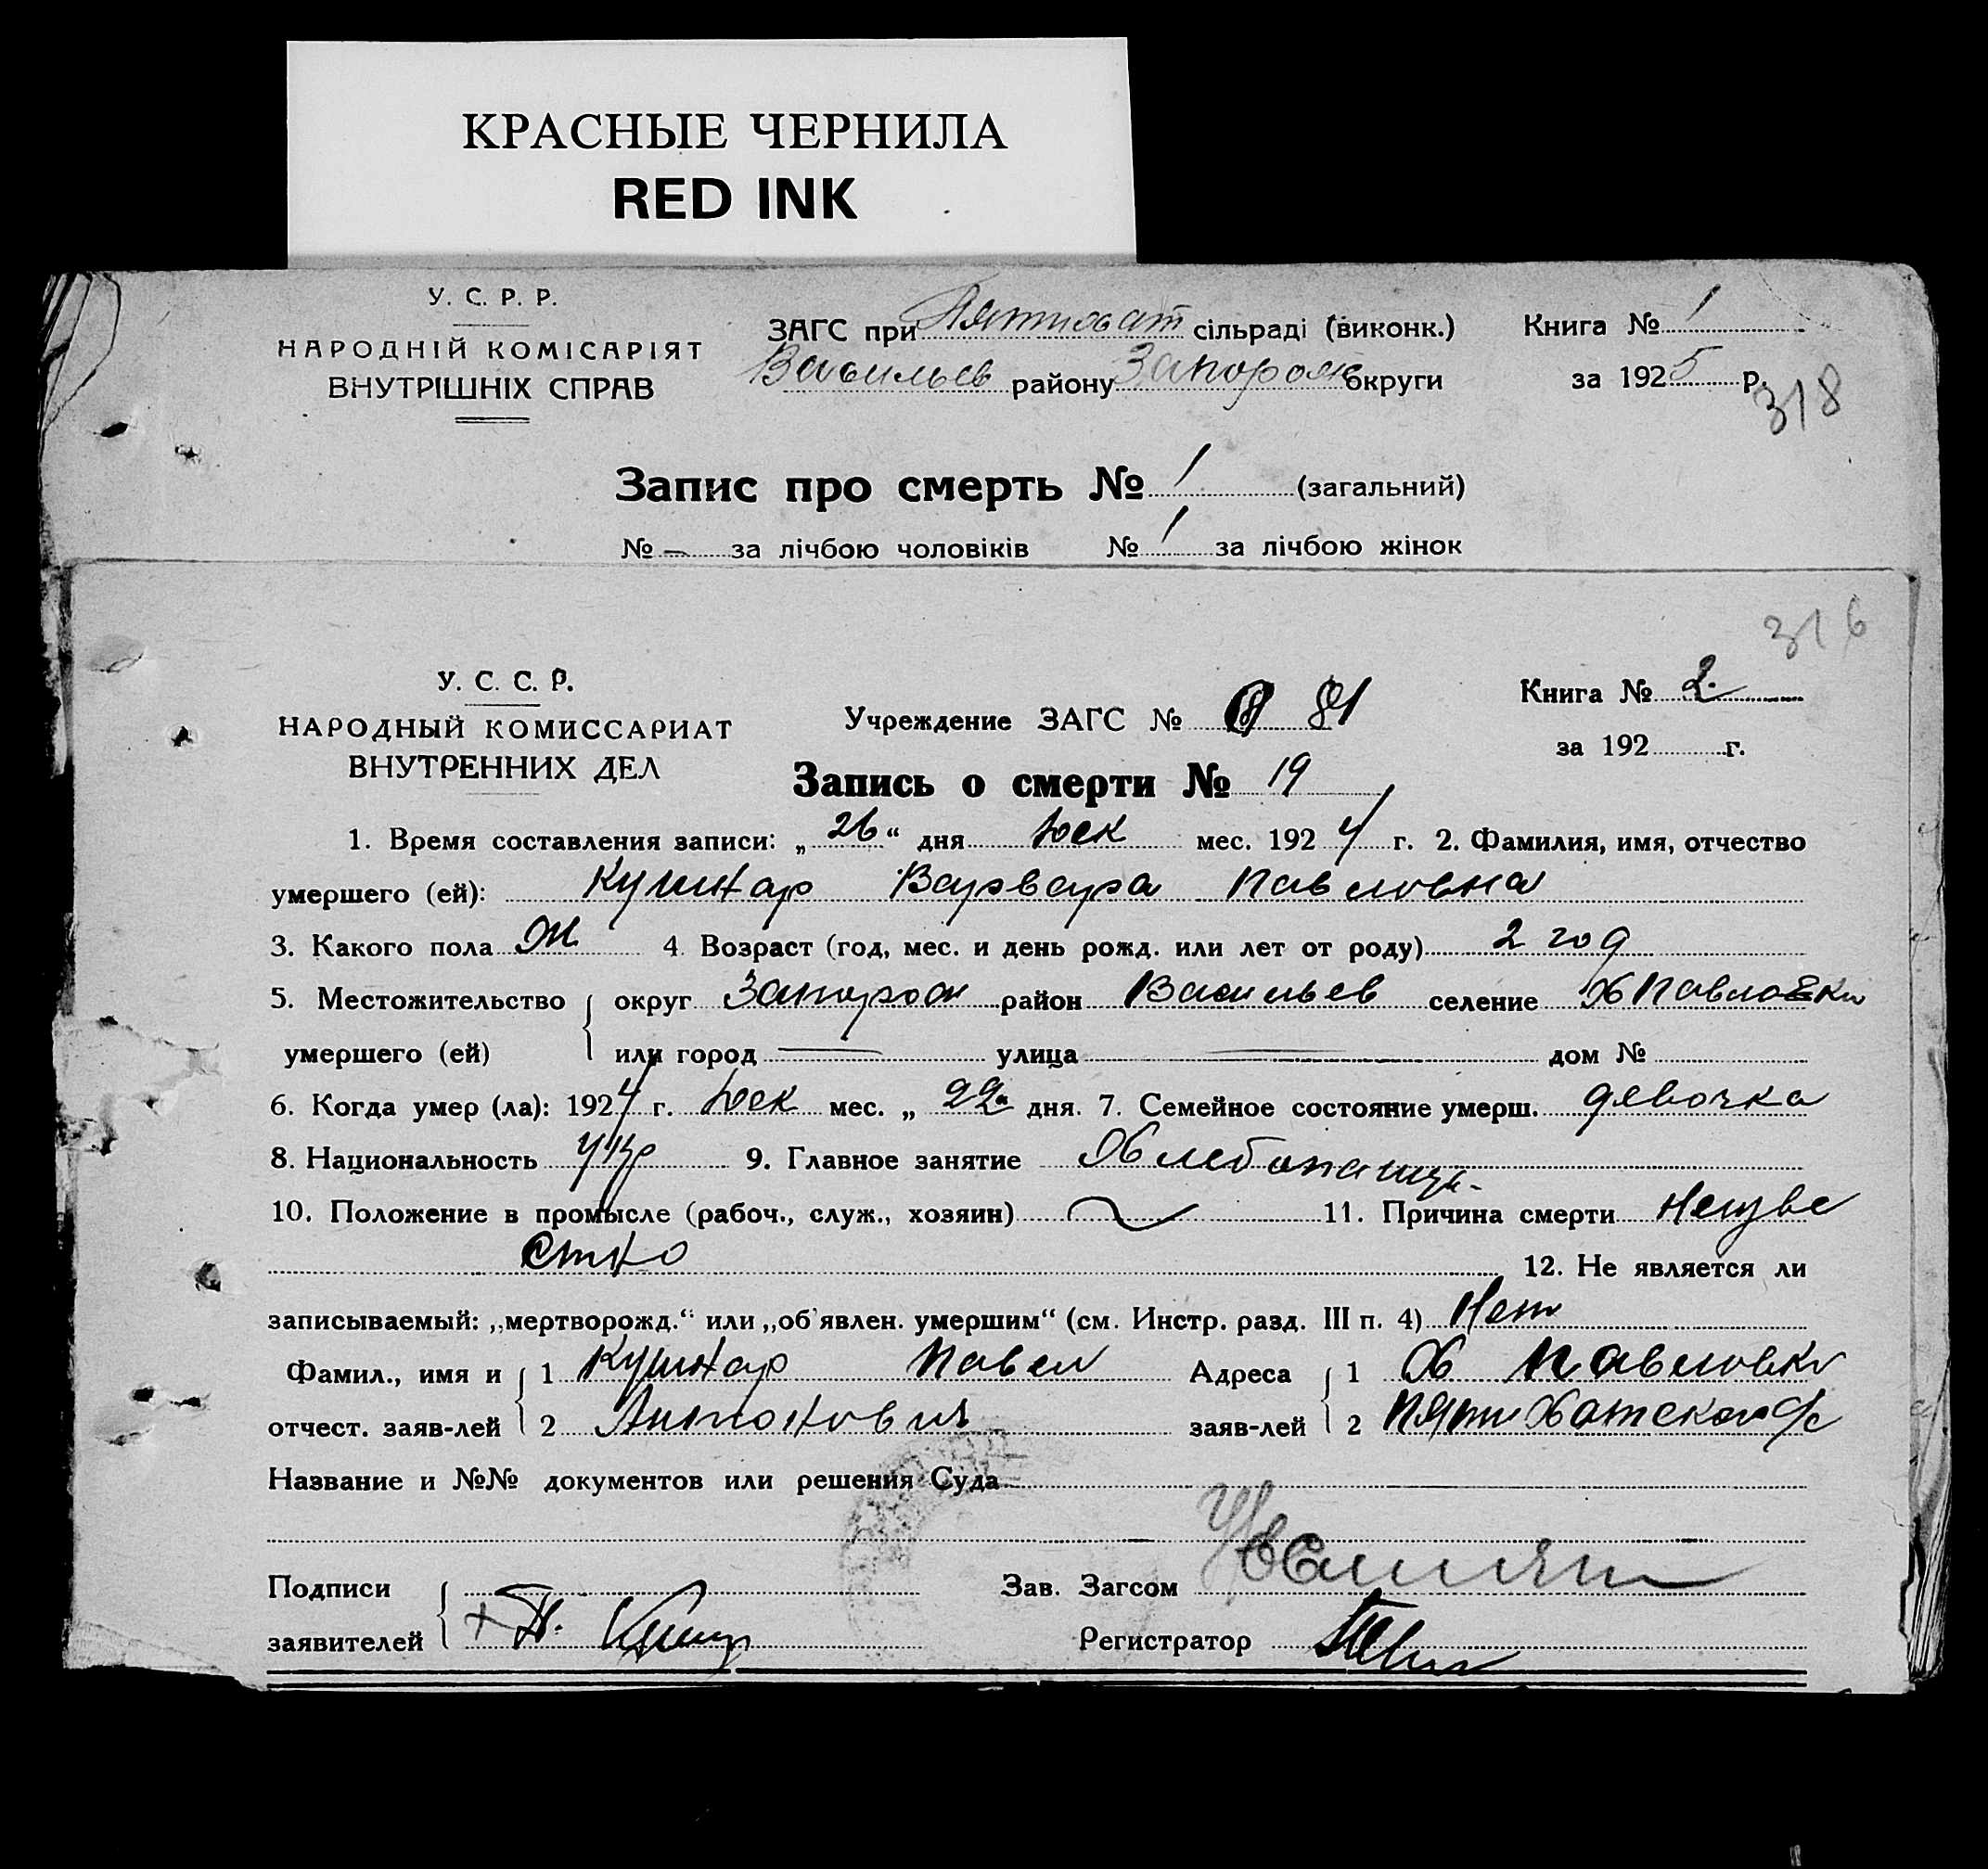 КРАСНЫЕ ЧЕРНИЛА
RED INK
У. С. Р. Р.
НАРОДНІЙ КОМІСАРІЯТ
ВНУТРІШНІХ СПРАВ
ЗАГС при Пятихат сільраді (виконк.)
Васильев району Запорож округи
Книга № 1
за 1925 р.
318
Запис про смерть № 1 (загальний)
№ — за лічбою чоловіків № 1 за лічбою жінок
316
У. С. С. Р.
НАРОДНЫЙ КОМИССАРИАТ
ВНУТРЕННИХ ДЕЛ
Учреждение ЗАГС № 81
Книга № 2.
за 192 г.
Запись о смерти № 19
1. Время составления записи: „26“ дня Дек мес. 1924 г. 2. Фамилия, имя, отчество
умершего (ей): Кушнар Варвара Павловна
3. Какого пола Ж 4. Возраст (год, мес. и день рожд. или лет от роду) 2 год
5. Местожительство округ Запорож район Васильев селение Х Павловки
умершего (ей) или город — улица — дом №
6. Когда умер (ла): 1924 г. Дек мес. „22“ дня. 7. Семейное состояние умерш. девочка
8. Национальность Укр 9. Главное занятие Хлебопашц.
10. Положение в промысле (рабоч., служ., хозяин) 11. Причина смерти Неизве
стно 12. Не является ли
записываемый: „мертворожд.“ или „об'явлен. умершим“ (см. Инстр. разд. III п. 4) Нет
Фамил., имя и 1 Кушнар Павел Адреса 1 Х Павловки
отчест. заяв-лей 2 Антонович заяв-лей 2 Пятихатского с/с
Название и №№ документов или решения Суда
Подписи Зав. Загсом
заявителей + П. Регистратор